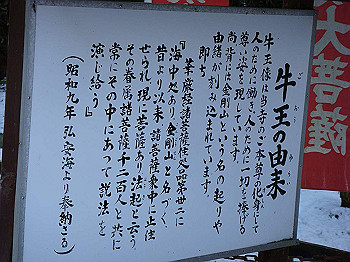 牛王の由来
ごおう ゆらい
牛王像は当寺のご本尊の化身にして
人のため働き人のために一切を捧げる
尊い姿を現しています。
尚背には金剛山という名の起りや
由緒が刻み込まれています。
即ち
『華厳経諸菩薩住処品第廿二に
海中処あり金剛山と名づく、
昔より以来諸菩薩衆中に止住
せられ現に菩薩あり法起と云う、
その眷属諸菩薩千二百人と共に
常にその中にあって説法を
演じ給う』
(昭和九年 弘安海より奉納さる)
大菩薩